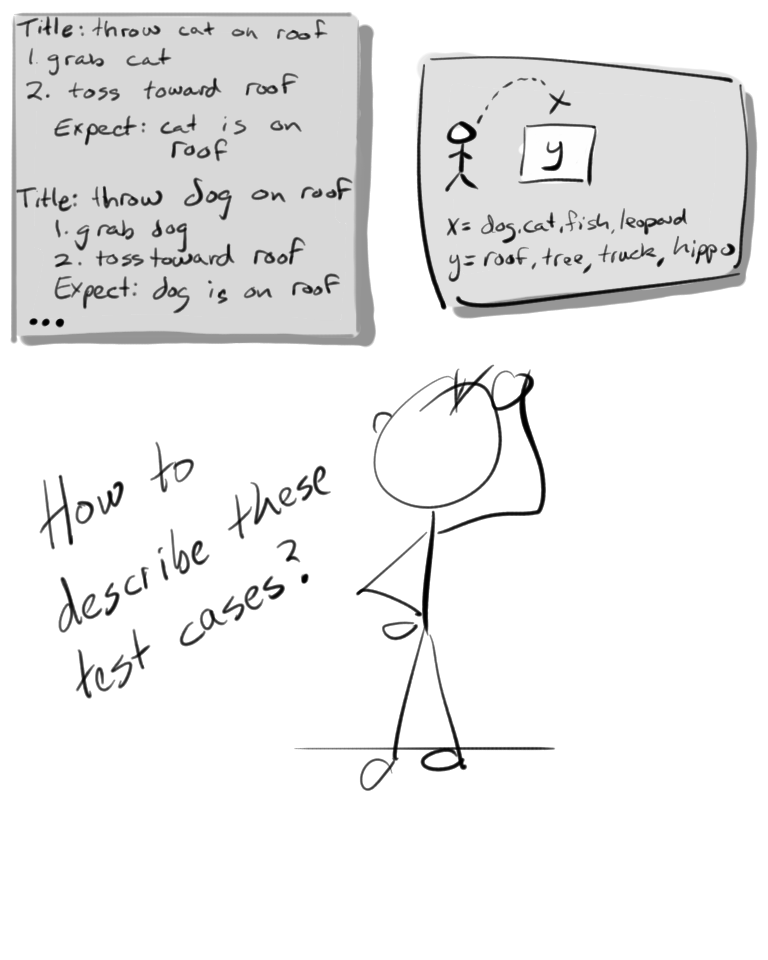 Title: throw cat on roof
1. grab cat
2. toss toward roof
Expect: cat is on
roof
Title: throw dog on roof
1. grab dog
2. toss toward roof
Expect: dog is on roof
...
x
y
x= dog, cat, fish, leopard
y= roof, tree, truck, hippo
How to
describe these
test cases?